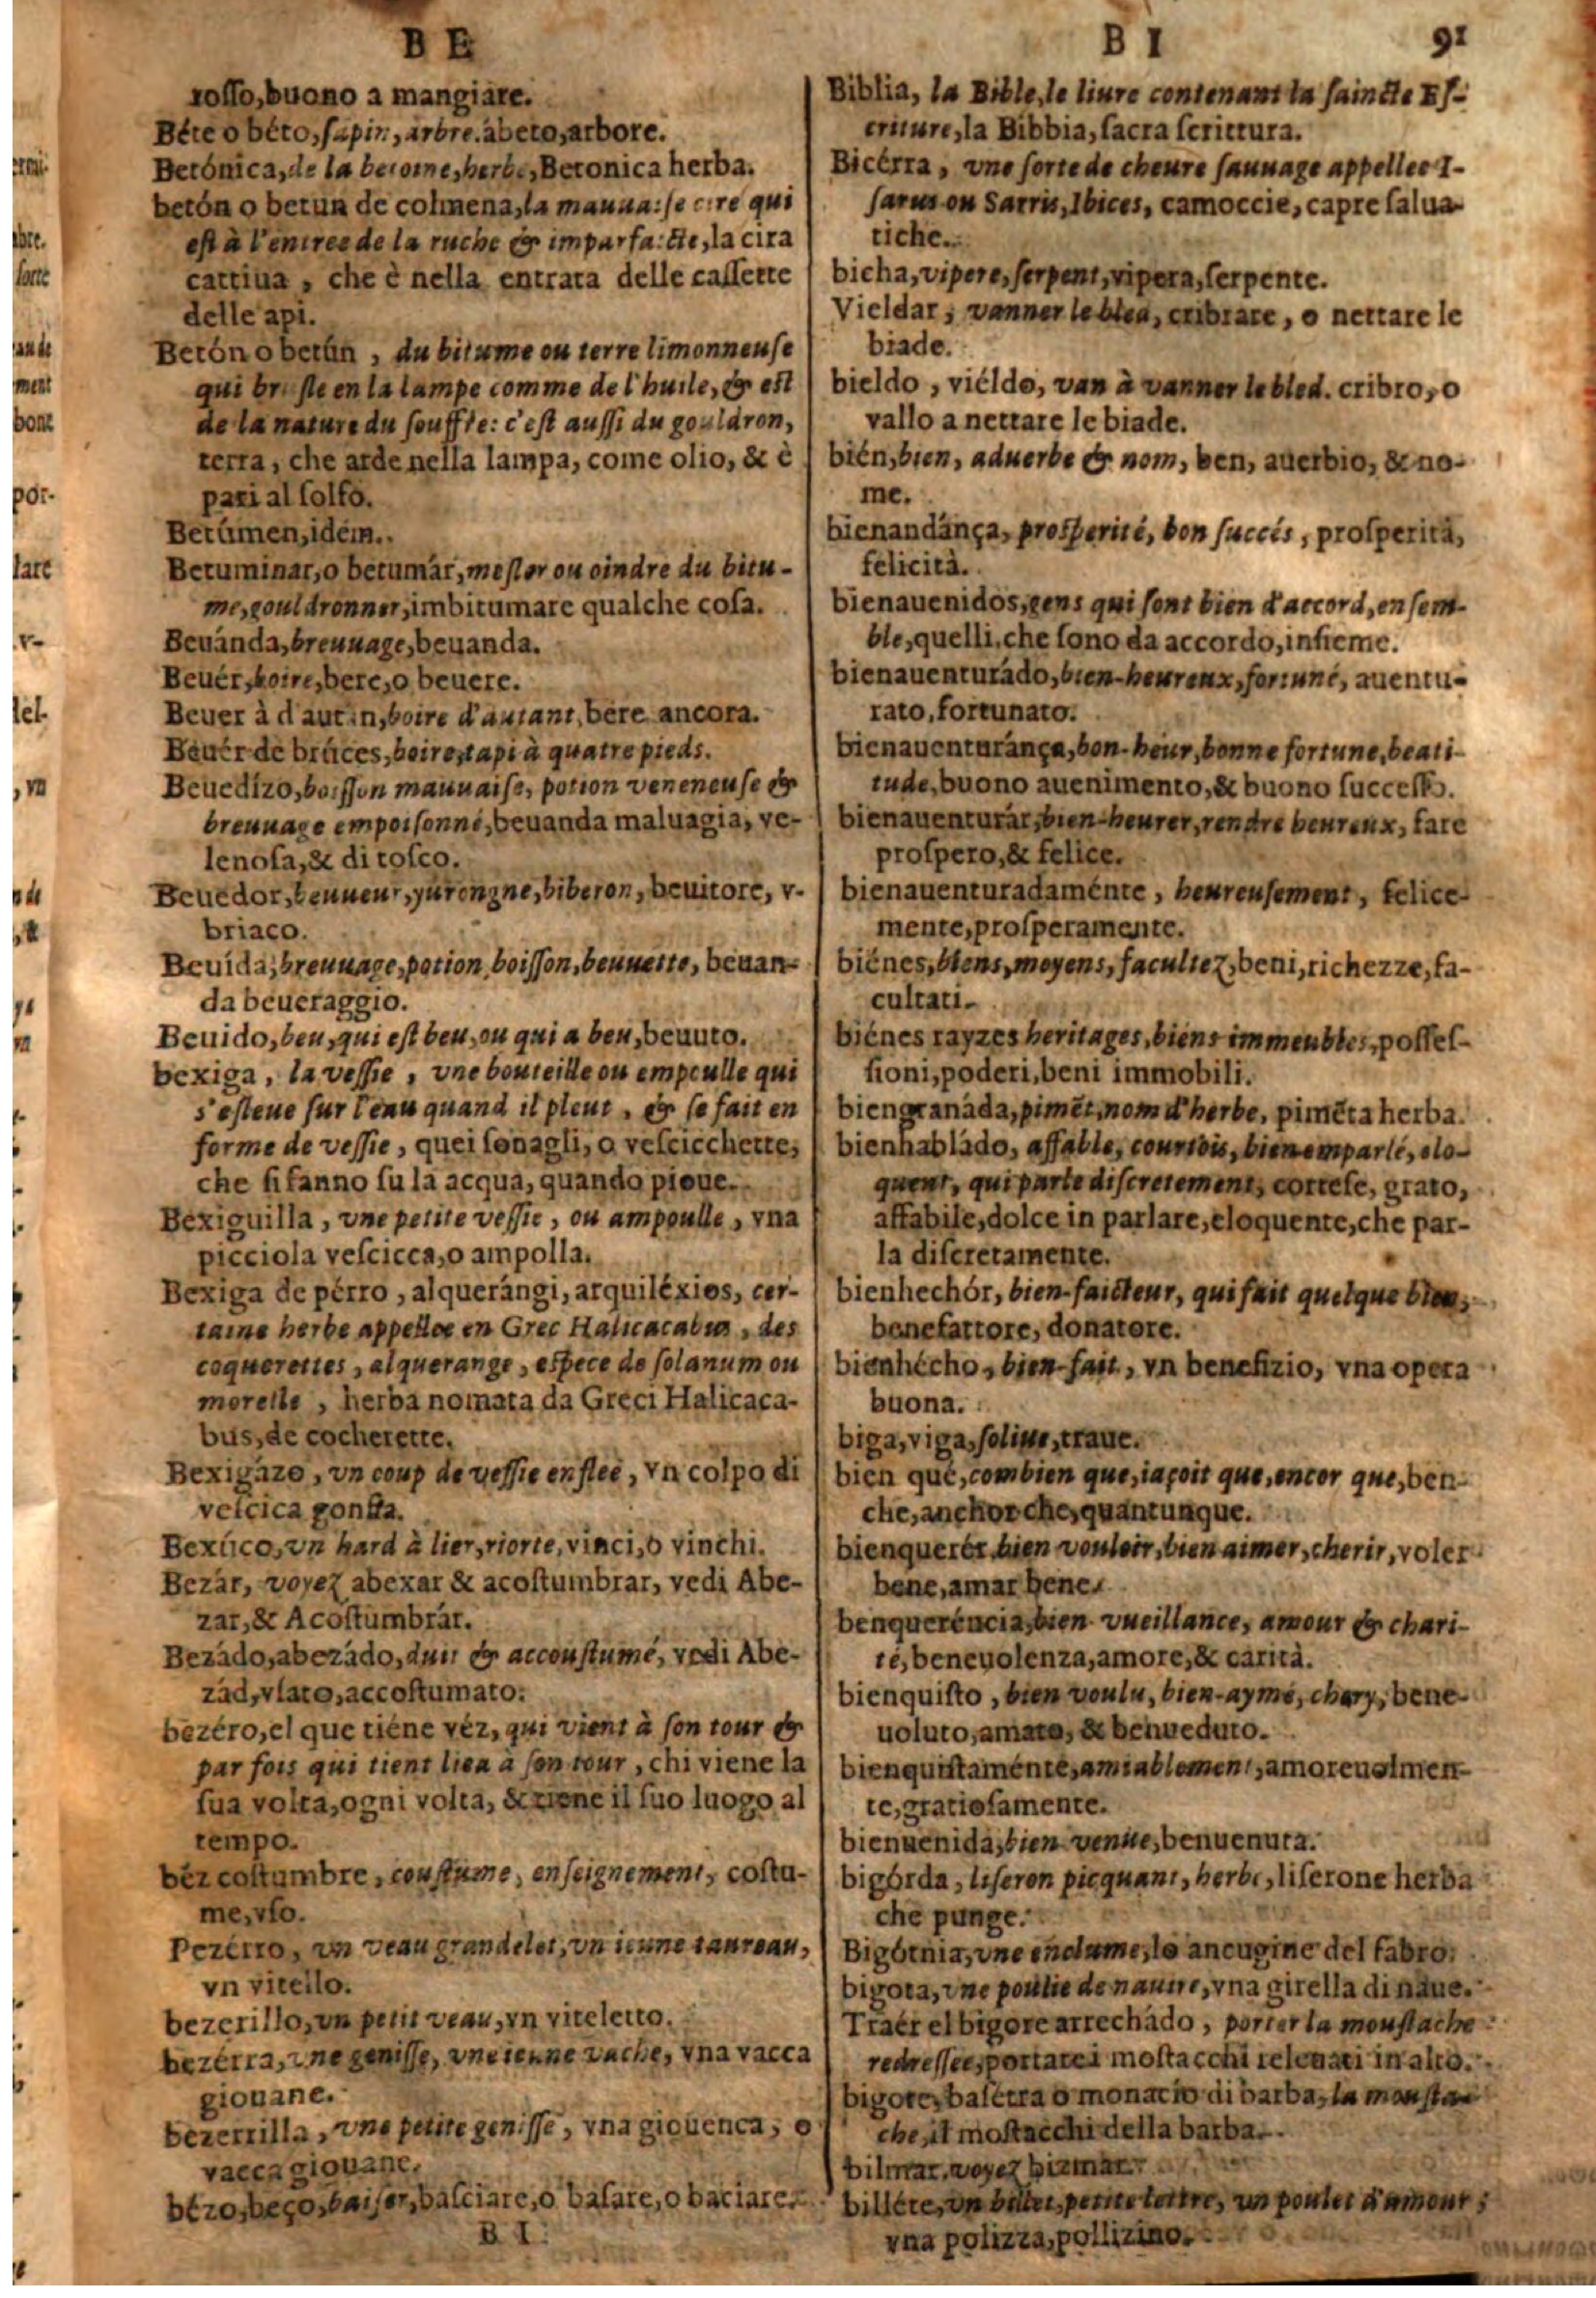 B E
rosso, buono a mangiare.
Béte o béto, sapin, arbre. abeto, arbore.
Betónica, de la betoine, herbe, Betonica herba.
betón o betun de colmena, la mauuaise cire qui
est à l'entree de la ruche & imparfaicte, la cira
cattiua, che è nella entrata delle cassette
delle api.
Betón o betún, du bitume ou terre limonneuse
qui brusle en la lampe comme de l'huile, & est
de la nature du souffre: c'est aussi du gouldron,
terra, che arde nella lampa, come olio, & è
pari al solfo.
Betúmen, idem..
Betuminar, o betumár, mesler ou oindre du bitu-
me, gouldronner, imbitumare qualche cosa.
Beuánda, breuuage, beuanda.
Beuér, boire, bere, o beuere.
Beuer à d'autan, boire d'autant, bere ancora.
Beuér de brúces, boire, tapi à quatre pieds.
Beuedízo, boisson mauuaise, potion veneneuse &
breuuage empoisonné, beuanda maluagia, ve-
lenosa, & di tosco.
Beuedor, beuueur, yurongne, biberon, beuitore, v-
briaco.
Beuída, breuuage, potion, boisson, beuuette, beuan-
da beueraggio.
Beuido, beu, qui est beu, ou qui a beu, beuuto.
bexiga, la vessie, vne bouteille ou empoulle qui
s'esleue sur l'eau quand il pleut, & se fait en
forme de vessie, quei sonagli, o vescicchette,
che si fanno su la acqua, quando pioue.
Bexiguilla, vne petite vessie, ou ampoulle, vna
picciola vescicca, o ampolla.
Bexiga de pérro, alquerángi, arquiléxios, cer-
taine herbe appellee en Grec Halicacabus, des
coquerettes, alquerange, espece de solanum ou
morelle, herba nomata da Greci Halicaca-
bus, de cocherette.
Bexigázo, vn coup de vessie enflee, vn colpo di
vescica gonfia.
Bexúco, vn hard à lier, riorte, vinci, o vinchi.
Bezár, voyez abexar & acostumbrar, vedi Abe-
zar, & Acostumbrár.
Bezádo, abezádo, duit & accoustumé, vedi Abe-
zad, vsato, accostumato.
bezéro, el que tiéne véz, qui vient à son tour &
par fois qui tient lieu à son tour, chi viene la
sua volta, ogni volta, & tiene il suo luogo al
tempo.
béz costumbre, coustume, enseignement, costu-
me, vso.
Pezérro, vn veau grandelet, vn ieune taureau,
vn vitello.
bezerillo, vn petit veau, vn viteletto.
bezérra, vne genisse, vne ieune vache, vna vacca
giouane.
bezerrilla, vne petite genisse, vna giouenca, o
vacca giouane.
bézo, beço, baiser, basciare, o basare, o baciare.
B I
B I 91
Biblia, la Bible, le liure contenant la saincte Es-
criture, la Bibbia, sacra scrittura.
Bicérra, vne sorte de cheure sauuage appellee I-
sarus ou Sarris, Ibices, camoccie, capre salua-
tiche.
bicha, vipere, serpent, vipera, serpente.
Vieldar, vanner le bled, cribrare, o nettare le
biade.
bieldo, viéldo, van à vanner le bled. cribro, o
vallo a nettare le biade.
bién, bien, aduerbe & nom, ben, auerbio, & no-
me.
bienandánça, prosperité, bon succés, prosperità,
felicità.
bienauenidos, gens qui sont bien d'accord, ensem-
ble, quelli, che sono da accordo, insieme.
bienauenturádo, bien-heureux, fortuné, auentu-
rato, fortunato.
bienauenturánça, bon-heur, bonne fortune, beati-
tude, buono auenimento, & buono successo.
bienauenturár, bien-heurer, rendre heureux, fare
prospero, & felice.
bienauenturadaménte, heureusement, felice-
mente, prosperamente.
biénes, biens, moyens, facultez, beni, richezze, fa-
cultati.
biénes rayzes heritages, biens immeubles, posses-
sioni, poderi, beni immobili.
biengranáda, pimẽt, nom d'herbe, pimẽta herba.
bienhabládo, affable, courtois, bien emparlé, elo-
quent, qui parle discretement, cortese, grato,
affabile, dolce in parlare, eloquente, che par-
la discretamente.
bienhechór, bien-faicteur, qui fait quelque bien,
benefattore, donatore.
bienhécho, bien-fait, vn benefizio, vna opera
buona.
biga, viga, soliue, traue.
bien qué, combien que, iaçoit que, encor que, ben-
che, anchor che, quantunque.
bienquerér bien vouloir, bien aimer, cherir, voler
bene, amar bene.
benqueréncia, bien vueillance, amour & chari-
té, beneuolenza, amore, & carità.
bienquisto, bien voulu, bien-aymé, chery, bene-
uoluto, amato, & benueduto.
bienquistaménte, amiablement, amoreuolmen-
te, gratiosamente.
bienuenida, bien venue, benuenuta.
bigórda, liseron picquant, herbe, liserone herba
che punge.
Bigórnia, vne enclume, lo ancugine del fabro.
bigota, vne poulie de nauire, vna girella di naue.
Traér el bigote arrechádo, porter la moustache
redressee, portare i mostacchi releuati in alto.
bigote, basétta o monacio di barba, la mousta-
che, il mostacchi della barba.
bilmar, voyez bizmar.
billéte, vn billet, petite lettre, un poulet d'amour;
vna polizza, pollizino.